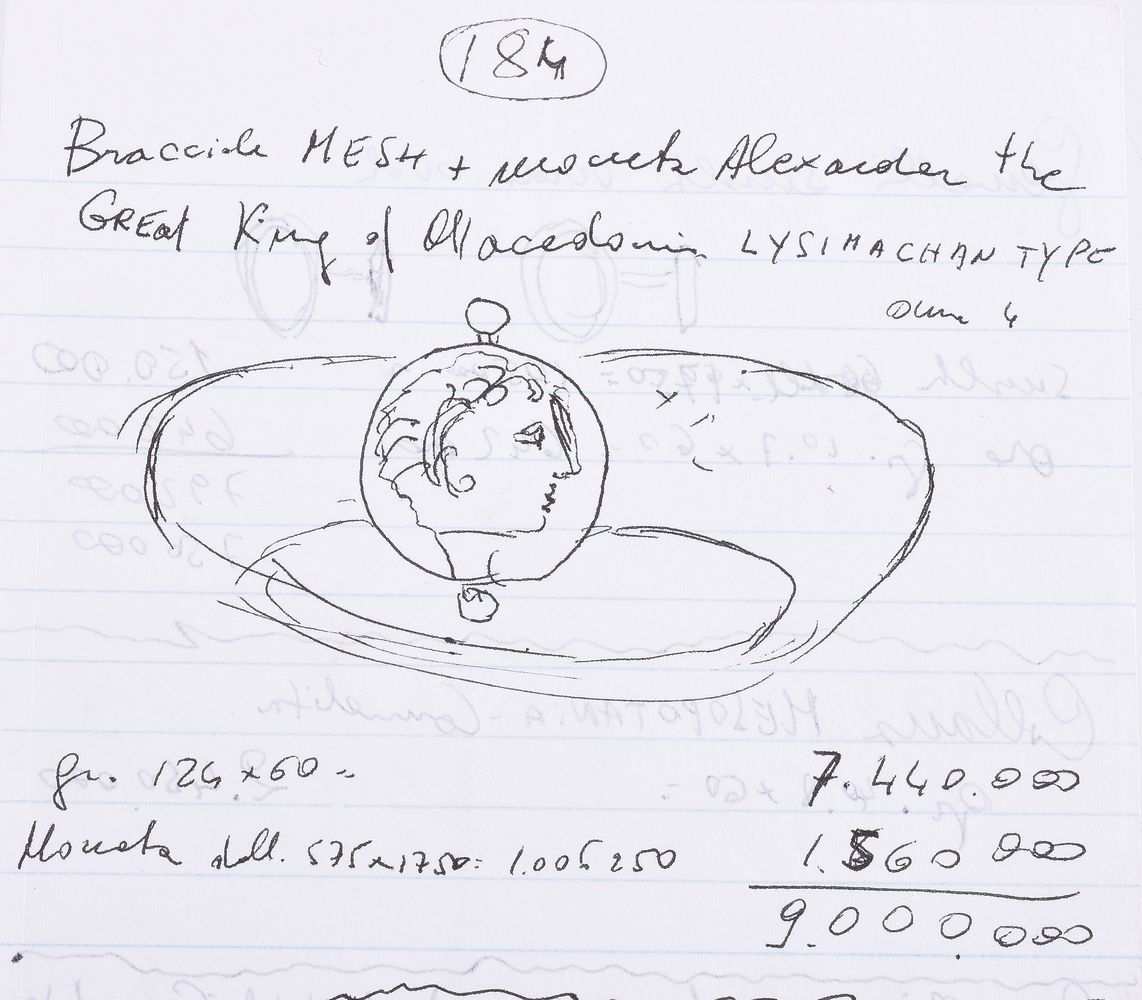 184
Bracciale MESH + moneta Alexander the
GREat King of Macedonia LYSIMACHAN TYPE
gr. 124 x 60 = 7.440.000
Moneta doll. 575 x 1750 = 1.006 250 1.560 000
9.000 000